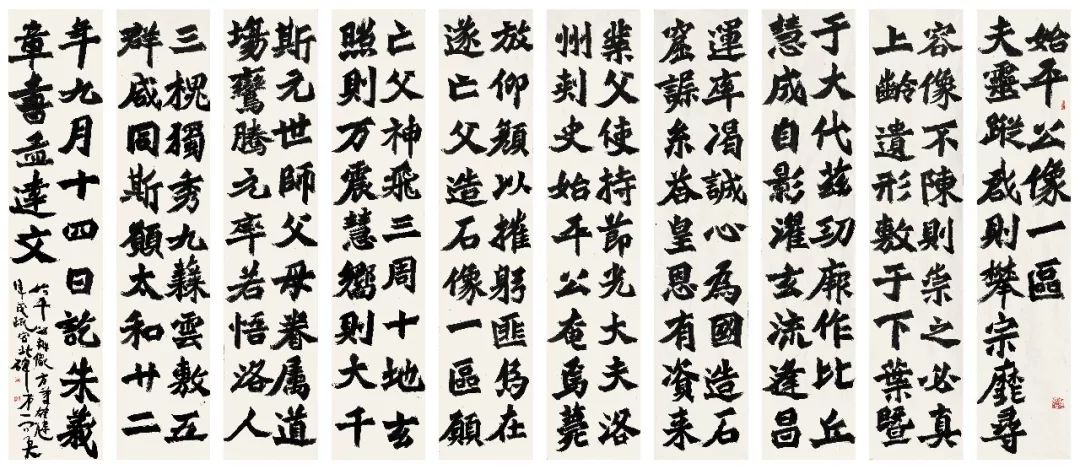 始平公像一區
夫靈蹤咸則攀宗靡尋
容像不陳則崇之必真
上齡遺形敷于下葉暨
于大代茲功厥作比丘
慧成自影濯玄流逢昌
運率渴誠心為國造石
窟糸荅皇恩有資来
業父使持節光大夫洛
州刾史始平公奄焉薨
放仰顏以摧躬匪烏在
遂亡父造石像一區願
亡父神飛三周十地玄
照則万震慧嚮則大千
斯元世師父母眷属道
塲鸞騰元率若悟洛人
三槐獨秀九蕀雲敷五
群咸同斯願太和廿二
年九月十四日訖朱義
章書孟達文